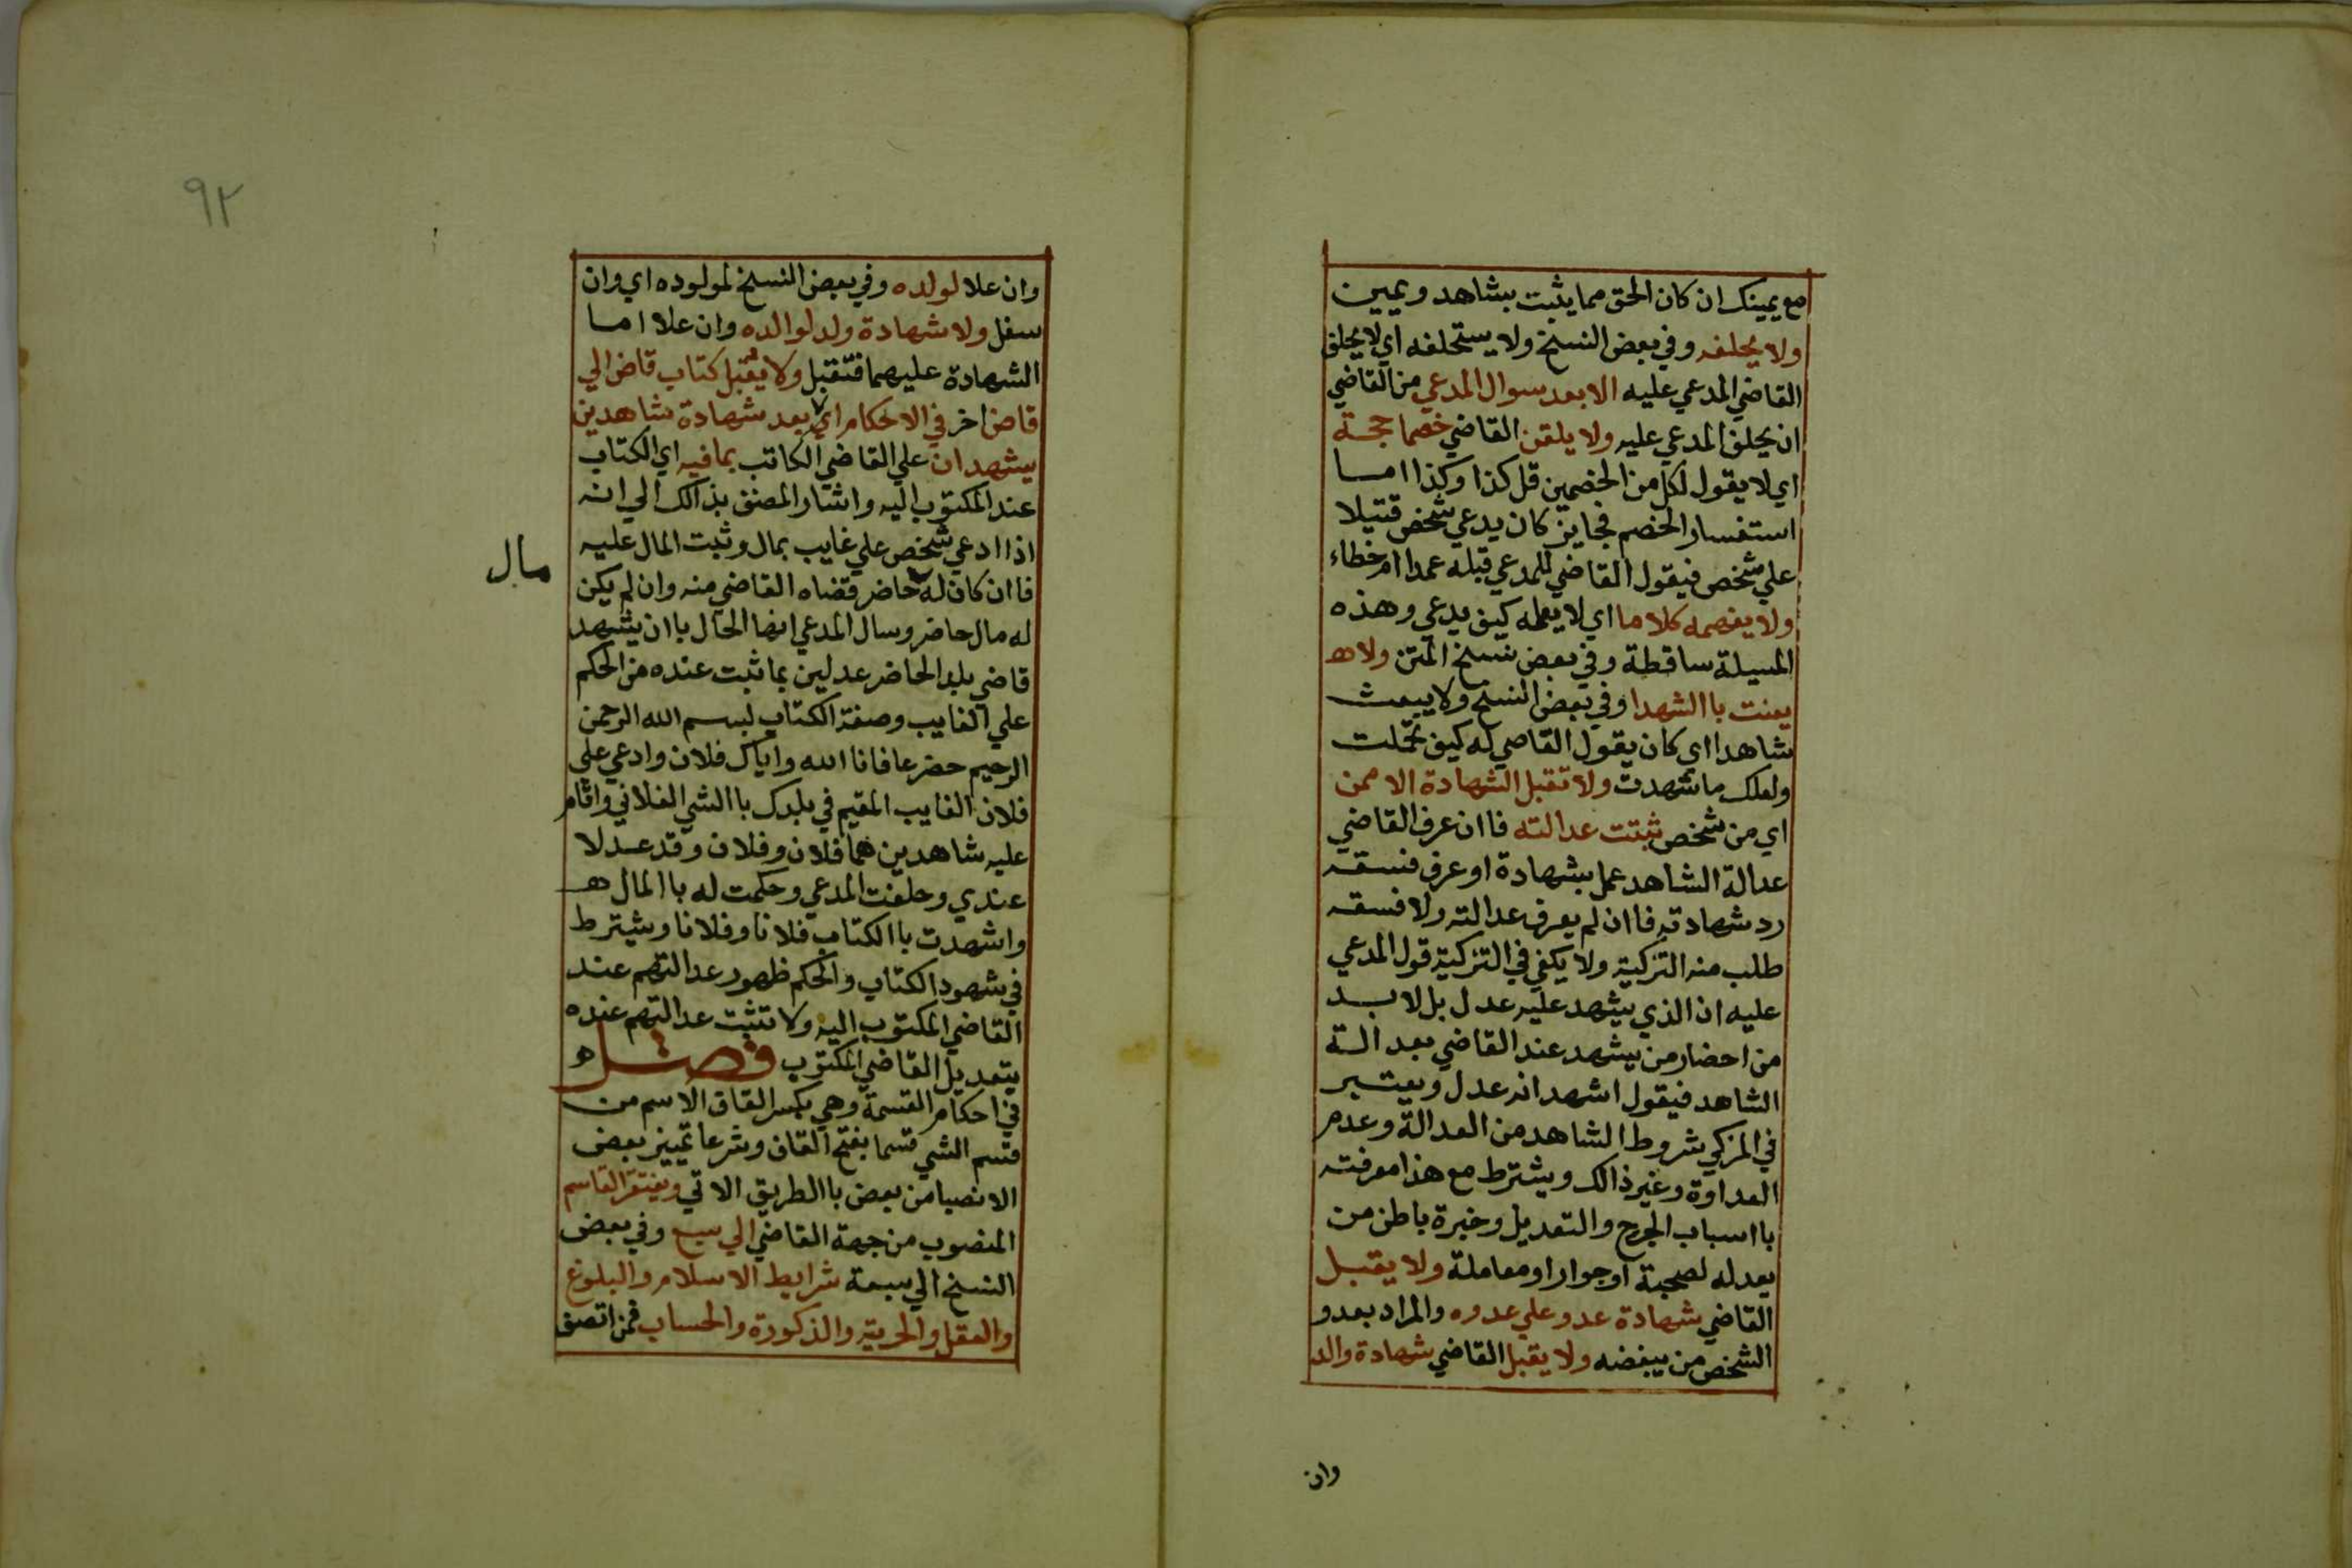 مع يمينك ان كان الحق مما يثبت بشاهد ويمين
ولا يحلفه وفي بعض النسخ ولا يستحلفه اي لا يحلف
القاضي المدعي عليه الا بعد سوال المدعي من القاضي
ان يحلف المدعي عليه ولا يلقن القاضي خصما حجة
اي لا يقول لكل من الخصمين قل كذا وكذا اما
استفسار الخصم فجايز كان يدعي شخص قتيلا
علي شخص فيقول القاضي للمدعي قبله عمدا ام خطاء
ولا يفهمه كلاما اي لا يعلمه كيف يدعي وهذه
المسيلة ساقطة وفي بعض نسخ المتن ولا ه
يعنت باالشهدا وفي بعض النسخ ولا يبعث
شاهدا اي كان يقول القاضي له كيف تحملت
ولعلك ما شهدت ولا تقبل الشهادة الا ممن
اي من شخص ثبتت عدالته فاان عرف القاضي
عدالة الشاهد عمل بشهادة او عرف فسقه
رد شهادته فاان لم يعرف عدالته ولا فسقه
طلب منه التزكية ولا يكفي في التزكية قول المدعي
عليه ان الذي يشهد عليه عدل بل لا بد
من احضار من يشهد عند القاضي بعد الـة
الشاهد فيقول اشهد انه عدل ويعتبر
في المزكي شروط الشاهد من العدالة وعدم
العداوة وغير ذالك ويشترط مع هذا معرفته
بااسباب الجرح والتعديل وخبرة باطن من
يعدله لصحبة او جوار او معاملة ولا يقبل
القاضي شهادة عدو علي عدوه والمراد بعدو
الشخص من يبغضه ولا يقبل القاضي شهادة والد
وان
٩٢
وان علا لولده وفي بعض النسخ لمولوده اي وان
سفل ولا شهادة ولد لوالده وان علا اما
الشهادة عليهما فتقبل ولا يقبل كتاب قاض الي
قاض اخر في الاحكام اي بعد شهادة شاهدين
يشهدان علي القاضي الكاتب بما فيه اي الكتاب
عند المكتوب اليه واشار المصنف بذالك الي انه
اذا ادعي شخص علي غايب بمال وثبت المال عليه
فاان كان له حاضر قضاه القاضي منه وان لم يكن
مال
له مال حاضر وسال المدعي انها الحال باان يشهد
قاضي بلد الحاضر عدلين بما ثبت عنده من الحكم
علي الغايب وصفة الكتاب لبسم الله الرحمن
الرحيم حضر عافانا الله واياك فلان وادعي علي
فلان الغايب المقيم في بلدك باالشي الفلاني واقام
عليه شاهدين هما فلان وفلان وقد عدلا
عندي وحلفت المدعي وحكمت له باالمال ه
واشهدت باالكتاب فلانا وفلانا ويشترط
في شهود الكتاب والحكم ظهور عدالتهم عند
القاضي المكتوب اليه ولا تثبت عدالتهم عنده
بتعديل القاضي المكتوب فصل ه
في احكام القسمة وهي بكسر القاف الاسم من
قسم الشي قسما بفتح القاف وشرعا تمييز بعض
الانصبا من بعض باالطريق الاتي ويفتقر القاسم
المنصوب من جهة القاضي الي سبع وفي بعض
النسخ الي سبعة شرايط الاسلام والبلوغ
والعقل والحرية والذكورة والحساب فمن اتصف